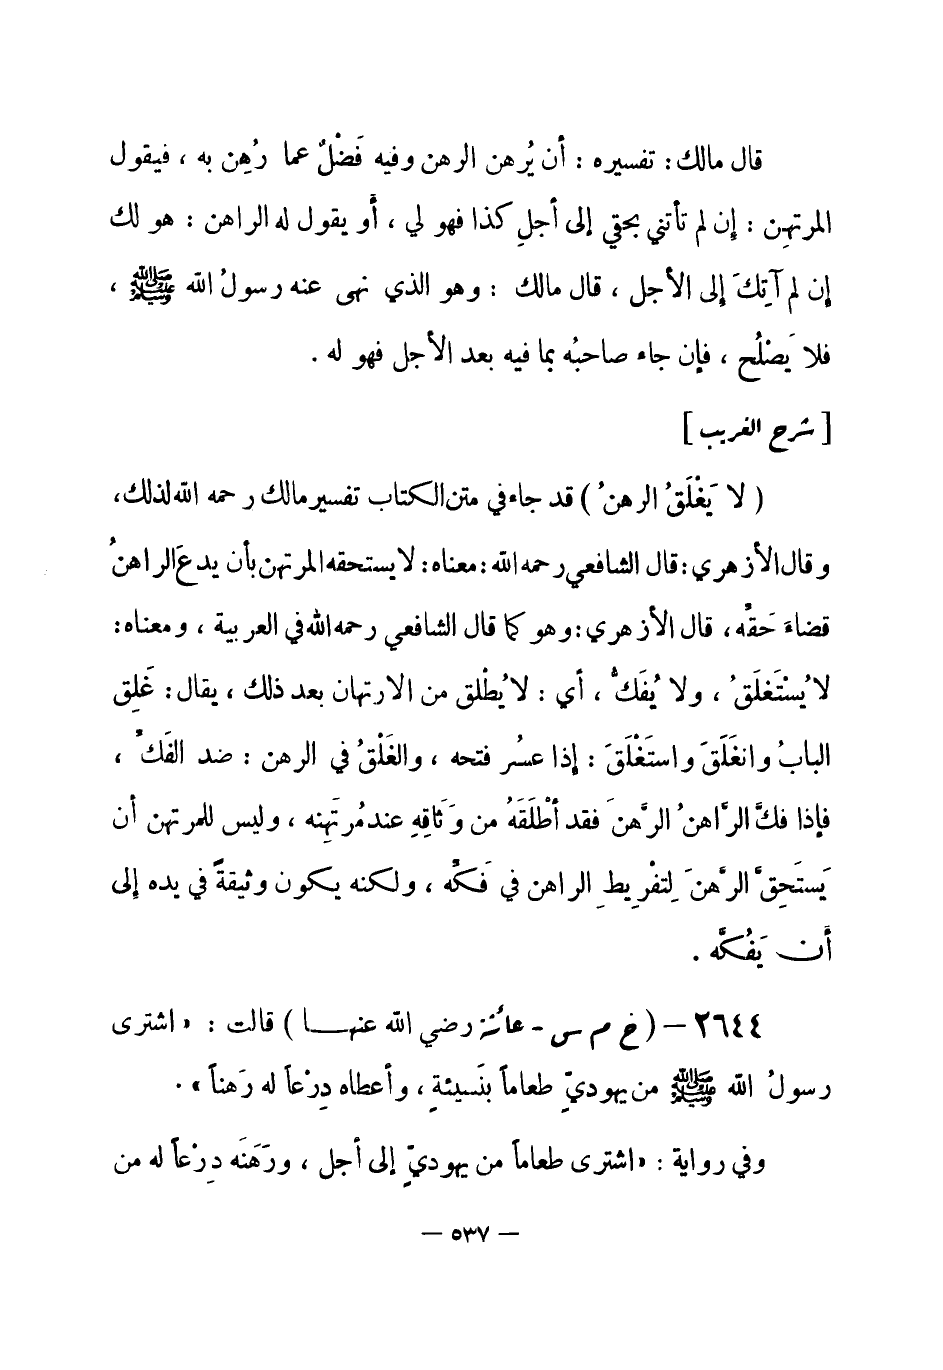 قال مالك: تفسيره : أن يُرهن الرهن وفيه فَضْلٌ عما رُهِن به ، فيقول
المرتهِن : إن لم تأتني بحقي إلى أجلِ كذا فهو لي ، أو يقول له الراهن : هو لك
إن لم آتِكَ إلى الأجل ، قال مالك : وهو الذي نهى عنه رسولُ الله ﷺ ،
فلا يَصْلُح ، فإن جاء صاحبُه بما فيه بعد الأجل فهو له .
[ شرح الغريب ]
( لا يَغْلَقُ الرهنُ ) قد جاء في متن الكتاب تفسير مالك رحمه الله لذلك،
وقال الأزهري: قال الشافعي رحمه الله: معناه: لا يستحقه المرتهن بأن يدعَ الراهنُ
قضاءَ حَقِّه، قال الأزهري: وهو كما قال الشافعي رحمه الله في العربية ، ومعناه:
لا يُسْتَغلَقُ ، ولا يُفَكُّ ، أي : لا يُطْلق من الارتهان بعد ذلك ، يقال: غَلِق
البابُ وانغَلَقَ واستَغْلَقَ : إذا عسُر فتحه ، والغَلْقُ في الرهن : ضد الفَكِّ ،
فإذا فكَّ الرَّاهنُ الرَّهنَ فقد أطْلَقَهُ من وَثَاقِهِ عند مُرتَهِنه ، وليس للمرتهن أن
يَستَحِقَّ الرَّهنَ لِتفْريطِ الراهن في فَكِّه ، ولكنه يكون وثيقةً في يده إلى
أن يَفُكَّه .
٢٦٤٤ – ( خ م س - عائشة رضي الله عنهـا ) قالت : « اشترى
رسولُ الله ﷺ من يهوديٍّ طعاماً بنَسيئةٍ ، وأعطاه دِرْعاً له رَهناً » .
وفي رواية : « اشترى طعاماً من يهوديٍّ إلى أجل ، ورَهَنَه دِرْعاً له من
— ٥٣٧ —